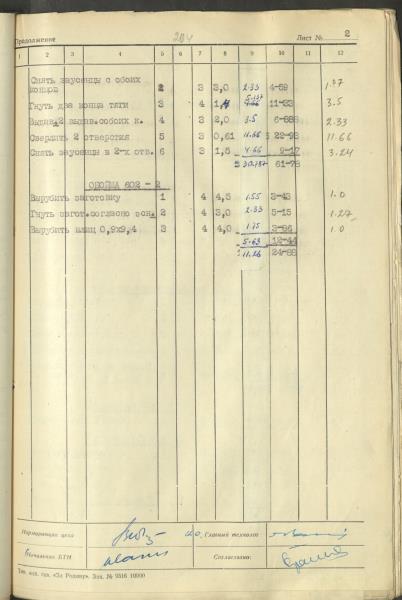 204
Продолжение Лист № 2
1 2 3 4 5 6 7 8 9 10 11 12
Снять заусенцы с обоих
концов 2 3 3,0 2.33 4-69 1.37
Гнуть два конца тяги 3 4 1,4 11-23 3.5
4 3 2,0 3.5 2.33
Сверлить 2 отверстия 5 3 0,61 11.66 22-93 11.66
Снять заусенцы в 2-х отв. 6 3 1,5 4.66 9-17 3.24
61-78
ОБОЙМА 602 - 2
Вырубить заготовку 1 4 4,5 1.55 3-43 1.0
Гнуть загот.согласно эск. 2 4 3,0 2.33 5-15 1.27
Вырубить шлиц 0,9х9,4 3 4 4,0 1.75 3-86 1.0
5.63 12-44
11.26 24-88
Нормировщик цеха И.О. Главный технолог
Начальник БТН Согласовано:
Тип. изд. газ. «За Родину». Зак. № 9316 10000